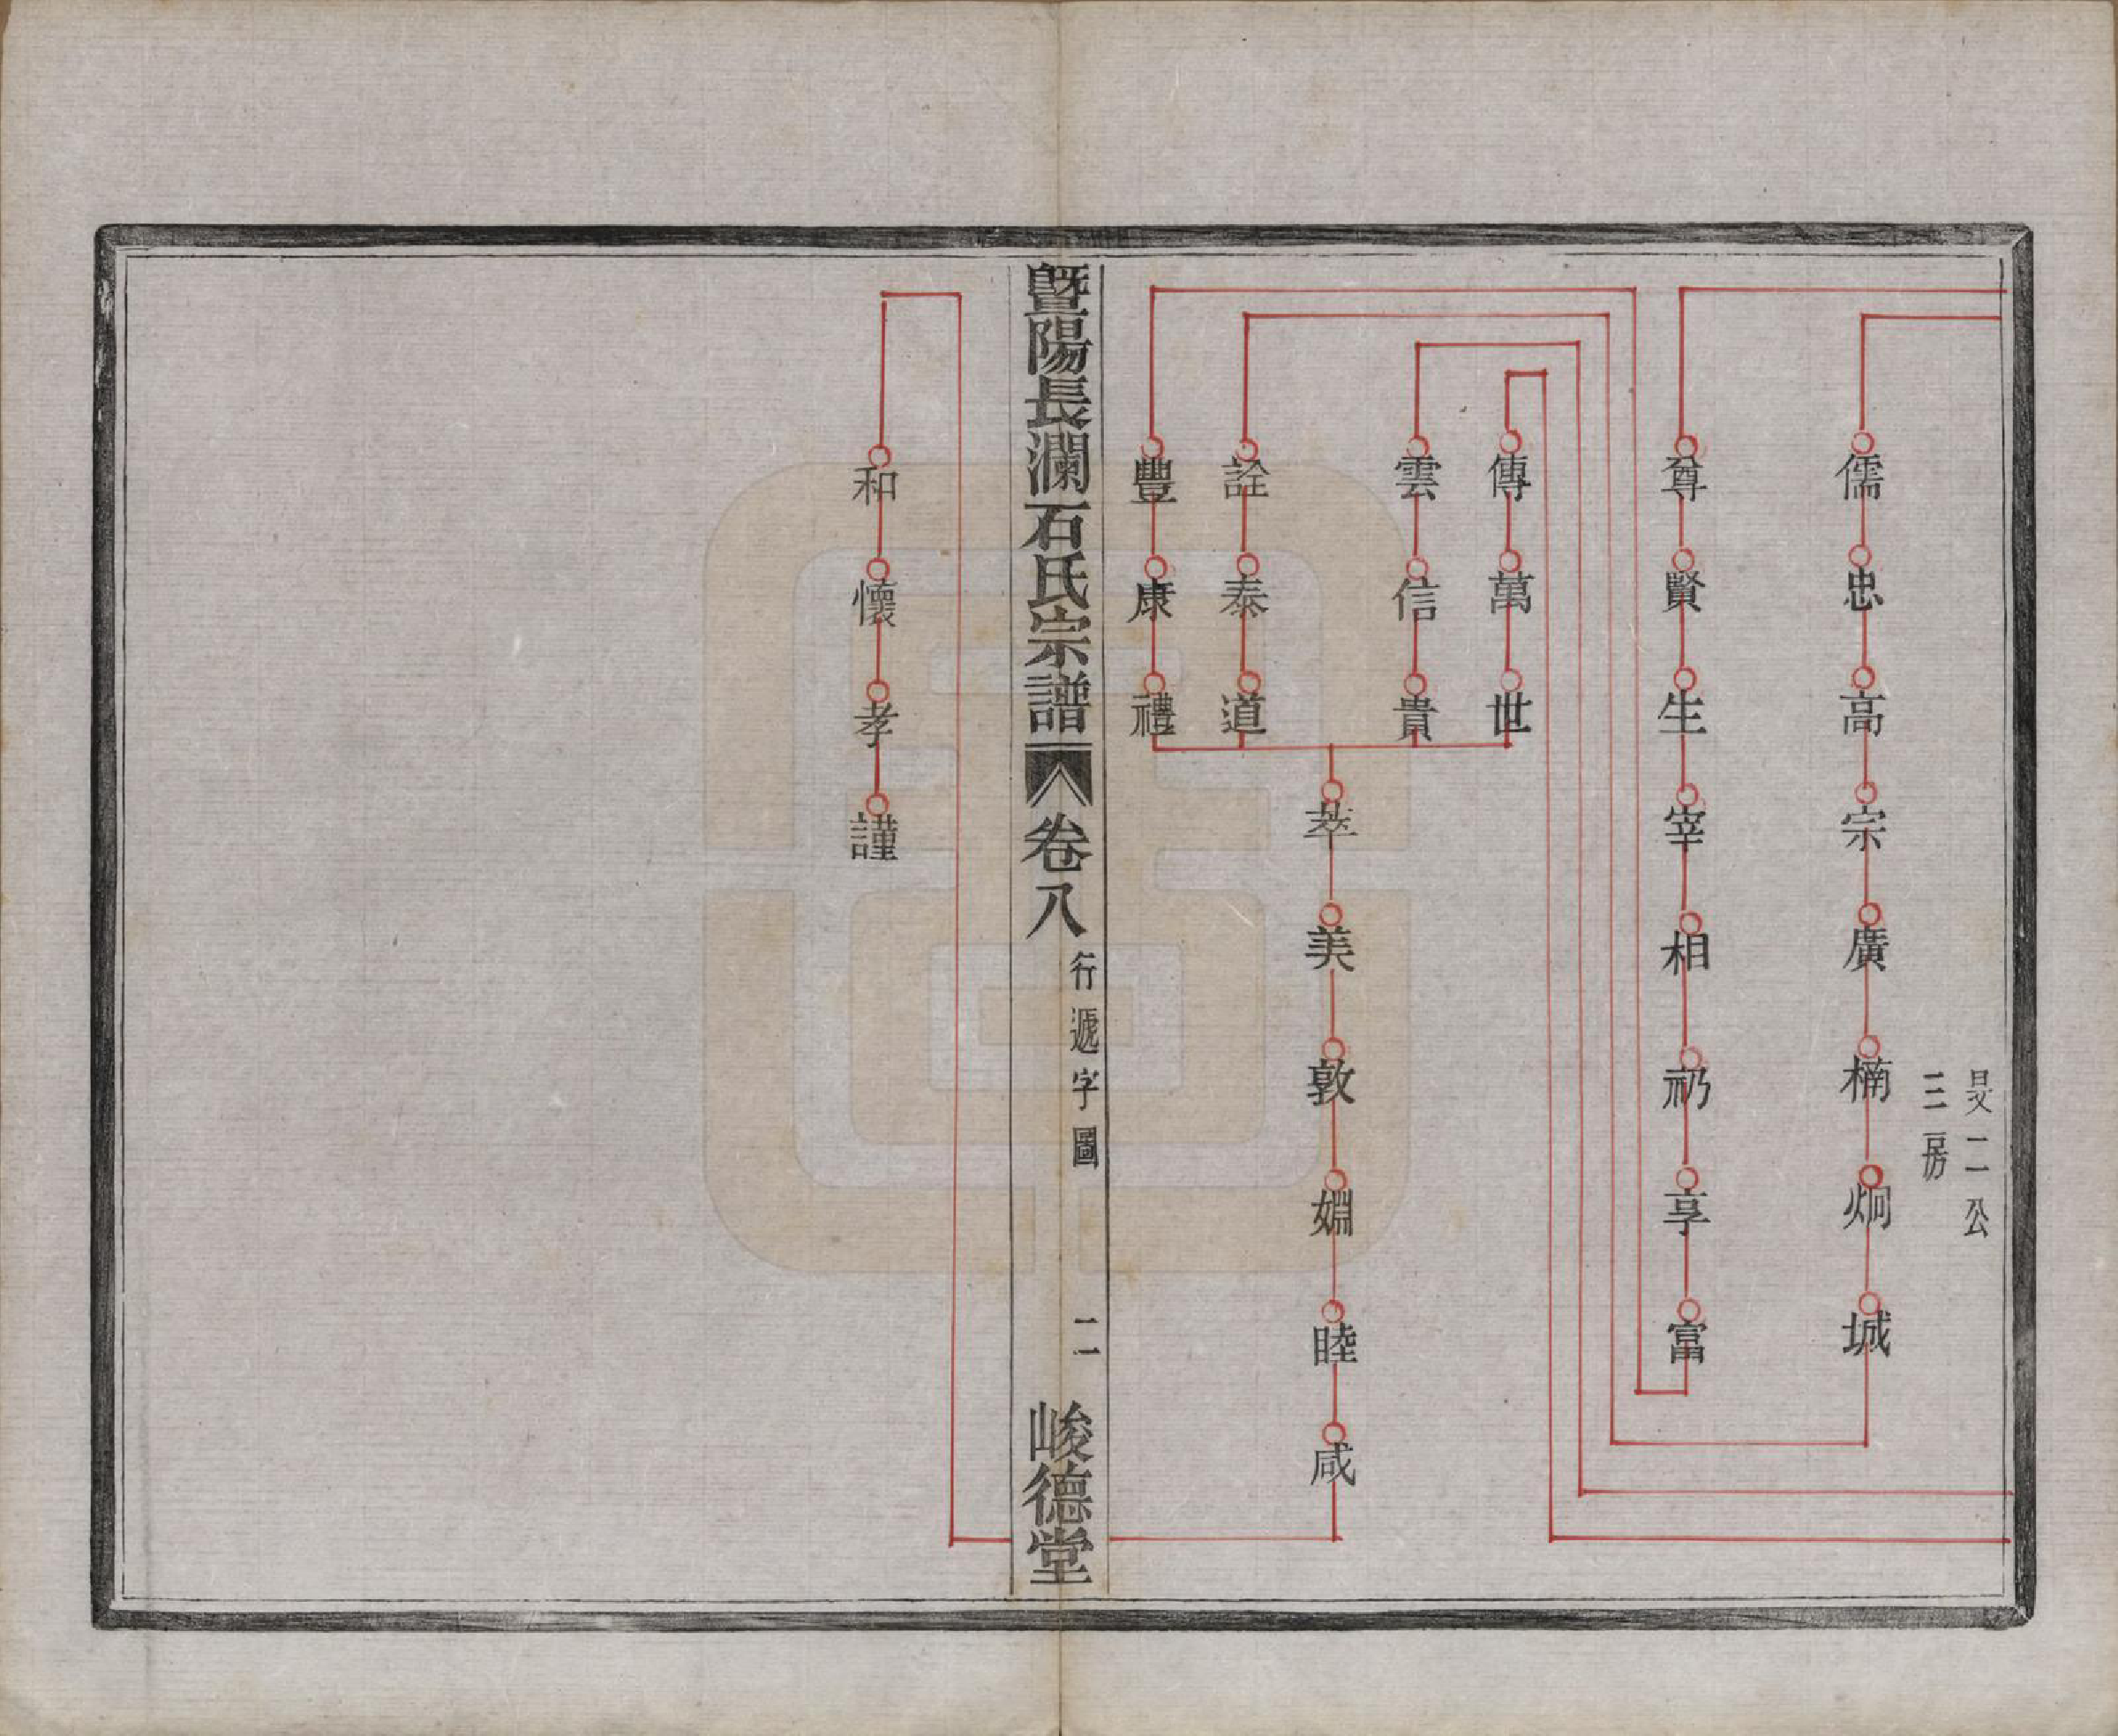 旻二公
三房
儒忠高宗廣楠炯城
尊賢生宰相礽享富
傳萬世
雲信貴
詮泰道
豐康禮
萃美敦嫺睦咸
暨陽長瀾石氏宗譜
卷八
行遞字圖
二
峻德堂
和懷孝謹